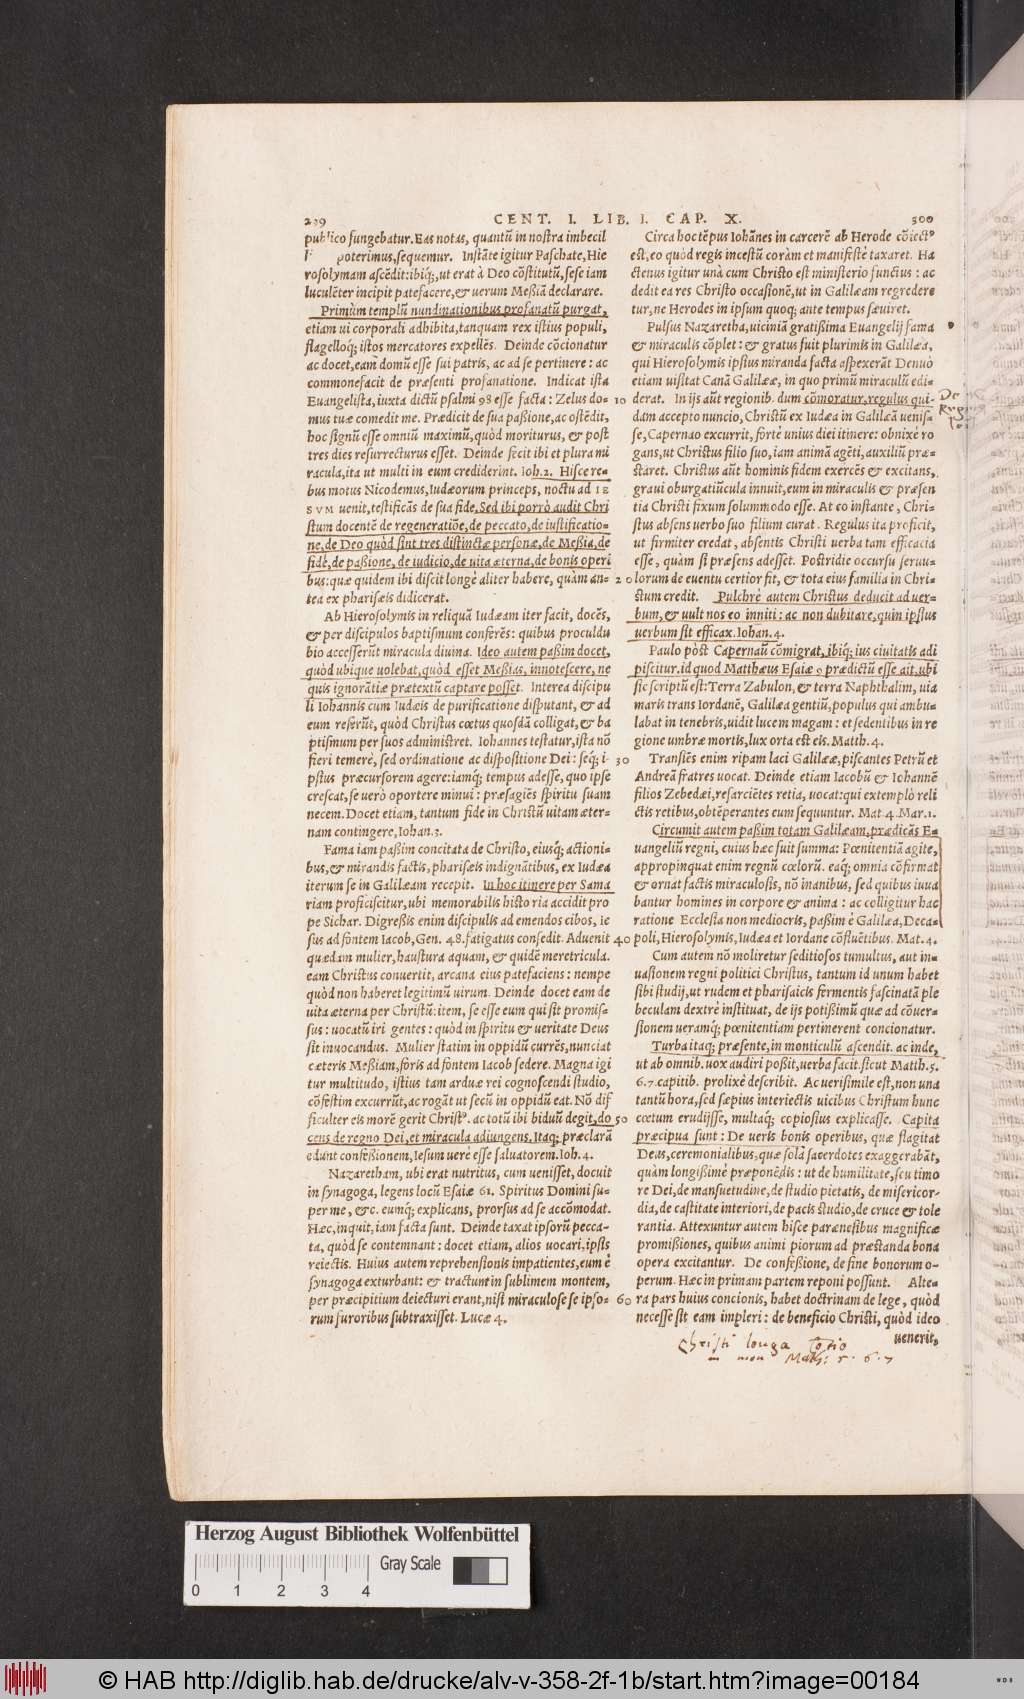 299 CENT. I. LIB. I. CAP. X. 300
publico fungebatur. Eas notas, quantũ in nostra imbecil
poterimus, sequemur. Instãte igitur Paschate, Hie
rosolymam ascẽdit: ibiq́;, ut erat à Deo cõstitutũ, sese iam
luculẽter incipit patefacere, & uerum Meßiã declarare.
Primùm templũ nundinationibus profanatũ purgat,
etiam ui corporali adhibita, tanquam rex istius populi,
flagelloq́; istos mercatores expellẽs. Deinde cõcionatur
ac docet, eam domũ esse sui patris, ac ad se pertinere: ac
commonefacit de præsenti profanatione. Indicat ista
Euangelista, iuxta dictũ psalmi 98 esse facta: Zelus do=
mus tuæ comedit me. Prædicit de sua paßione, ac ostẽdit,
hoc signũ esse omniũ maximũ, quòd moriturus, & post
tres dies resurrecturus esset. Deinde fecit ibi et plura mi
racula, ita ut multi in eum crediderint. Ioh. 2. Hisce re=
bus motus Nicodemus, Iudæorum princeps, noctu ad IE
SVM uenit, testificãs de sua fide. Sed ibi porrò audit Chri
stum docentẽ de regeneratiõe, de peccato, de iustificatio=
ne, de Deo quòd sint tres distinctæ personæ, de Meßia, de
fide, de paßione, de iudicio, de uita æterna, de bonis operi
bus: quæ quidem ibi discit longè aliter habere, quàm an=
tea ex pharisæis didicerat.
Ab Hierosolymis in reliquã Iudæam iter facit, docẽs,
& per discipulos baptismum conferẽs: quibus proculdu
bio accesserũt miracula diuina. Ideo autem paßim docet,
quòd ubique uolebat, quòd esset Meßias, innotescere, ne
quis ignorãtiæ prætextũ captare posset. Interea discipu
li Iohannis cum Iudæis de purificatione disputant, & ad
eum referũt, quòd Christus cœtus quosdã colligat, & ba
ptismum per suos administret. Iohannes testatur, ista nõ
fieri temerè, sed ordinatione ac dispositione Dei: seq́; i-
psius præcursorem agere: iamq́; tempus adesse, quo ipse
crescat, se uerò oportere minui: præsagiẽs spiritu suam
necem. Docet etiam, tantum fide in Christũ uitam æter=
nam contingere, Iohan. 3.
Fama iam paßim concitata de Christo, eiusq́; actioni=
bus, & mirandis factis, phariseis indignãtibus, ex Iudæa
iterum se in Galilæam recepit. In hoc itinere per Sama
riam proficiscitur, ubi memorabilis histo ria accidit pro
pe Sichar. Digreßis enim discipulis ad emendos cibos, Ie
sus ad fontem Iacob, Gen. 48. fatigatus consedit. Aduenit
quædam mulier, haustura aquam, & quidẽ meretricula.
eam Christus conuertit, arcana eius patefaciens: nempe
quòd non haberet legitimũ uirum. Deinde docet eam de
uita æterna per Christũ: item, se esse eum qui sit promis=
sus: uocatũ iri gentes: quòd in spiritu & ueritate Deus
sit inuocandus. Mulier statim in oppidũ currẽs, nunciat
cæteris Meßiam, foris ad fontem Iacob sedere. Magna igi
tur multitudo, istius tam arduæ rei cognoscendi studio,
cõfestim excurrũt, ac rogãt ut secũ in oppidũ eat. Nõ dif
ficulter eis morẽ gerit Christꝰ. ac totũ ibi biduũ degit, do
cens de regno Dei, et miracula adiungens. Itaq́; præclarã
edunt confeßionem, Iesum uerè esse saluatorem. Ioh. 4.
Nazaretham, ubi erat nutritus, cum uenisset, docuit
in synagoga, legens locũ Esaiæ 61. Spiritus Domini su=
per me, &c. eumq́; explicans, prorsus ad se accõmodat.
Hæc, inquit, iam facta sunt. Deinde taxat ipsorũ pecca=
ta, quòd se contemnant: docet etiam, alios uocari, ipsis
reiectis. Huius autem reprehensionis impatientes, eum è
synagoga exturbant: & tractum in sublimem montem,
per præcipitium deiecturi erant, nisi miraculose se ipso=
rum furoribus subtraxisset. Lucæ 4.
10
20
30
40
50
60
Circa hoc tẽpus Iohãnes in carcerẽ ab Herode cõiectꝰ
est, eo quòd regis incestũ coràm et manifestè taxaret. Ha
ctenus igitur unà cum Christo est ministerio functus: ac
dedit ea res Christo occasionẽ, ut in Galilæam regredere
tur, ne Herodes in ipsum quoq; ante tempus sæuiret.
Pulsus Nazaretha, uiciniã gratißima Euangelij fama
& miraculis cõplet: & gratus fuit plurimis in Galilæa,
qui Hierosolymis ipsius miranda facta aspexerãt Denuò
etiam uisitat Canã Galilææ, in quo primũ miraculũ edi=
derat. In ijs aũt regionib. dum cõmoratur, regulus qui-
dam accepto nuncio, Christũ ex Iudæa in Galilæã uenis=
se, Capernao excurrit, fortè unius diei itinere: obnixè ro
gans, ut Christus filio suo, iam animã agẽti, auxiliũ præ=
staret. Christus aũt hominis fidem exercẽs & excitans,
graui obiurgatiũcula innuit, eum in miraculis & præsen
tia Christi fixum solummodo esse. At eo instante, Chri=
stus absens uerbo suo filium curat. Regulus ita proficit,
ut firmiter credat, absentis Christi uerba tam efficacia
esse, quàm si præsens adesset. Postridie occursu seruu=
lorum de euentu certior fit, & tota eius familia in Chri=
stum credit. Pulchrè autem Christus deducit ad uer=
bum, & uult nos eo inniti: ac non dubitare, quin ipsius
uerbum sit efficax. Iohan. 4.
Paulo pòst Capernaũ cõmigrat, ibiq́; ius ciuitatis adi
piscitur. id quod Matthæus Esaiæ 9 prædictũ esse ait, ubi
sic scriptũ est: Terra Zabulon, & terra Naphthalim, uia
maris trans Iordanẽ, Galilæa gentiũ, populus qui ambu=
labat in tenebris, uidit lucem magam: et sedentibus in re
gione umbræ mortis, lux orta est eis. Matth. 4.
Transiẽs enim ripam laci Galilææ, piscantes Petrũ et
Andreã fratres uocat. Deinde etiam Iacobũ & Iohannẽ
filios Zebedæi, resarciẽtes retia, uocat: qui extemplò reli
ctis retibus, obtẽperantes eum sequuntur. Mat. 4. Mar. 1.
Circumit autem paßim totam Galilæam, prædicãs E=
uangeliũ regni, cuius hæc fuit summa: Pœnitentiã agite,
appropinquat enim regnũ cœlorũ. eaq́; omnia cõfirmat
& ornat factis miraculosis, nõ inanibus, sed quibus iuua
bantur homines in corpore & anima: ac colligitur hac
ratione Ecclesia non mediocris, paßim è Galilæa, Deca=
poli, Hierosolymis, Iudæa et Iordane cõfluẽtibus. Mat. 4.
Cum autem nõ moliretur seditiosos tumultus, aut in=
uasionem regni politici Christus, tantum id unum habet
sibi studij, ut rudem et pharisaicis fermentis fascinatã ple
beculam dextrè instituat, de ijs potißimũ quæ ad cõuer=
sionem ueramq́; pœnitentiam pertinerent concionatur.
Turba itaq; præsente, in monticulũ ascendit. ac inde,
ut ab omnib. uox audiri poßit, uerba facit sicut Matth. 5.
6. 7. capitib. prolixè describit. Ac uerisimile est, non una
tantũ hora, sed sæpius interiectis uicibus Christum hunc
cœtum erudijsse, multaq́; copiosius explicasse. Capita
præcipua sunt: De ueris bonis operibus, quæ flagitat
Deus, ceremonialibus, quæ solã sacerdotes exaggerabãt,
quàm longißimè præponẽdis: ut de humilitate, seu timo
re Dei, de mansuetudine, de studio pietatis, de misericor-
dia, de castitate interiori, de pacis studio, de cruce & tole
rantia. Attexuntur autem hisce parænesibus magnificæ
promißiones, quibus animi piorum ad præstanda bona
opera excitantur. De confeßione, de fine bonorum o-
perum. Hæc in primam partem reponi possunt. Alte=
ra pars huius concionis, habet doctrinam de lege, quòd
necesse sit eam impleri: de beneficio Christi, quòd ideo
uenerit,
Christi longa
in mon Math: 5. 6. 7
Herzog August Bibliothek Wolfenbüttel
Gray Scale
0 1 2 3 4
© HAB http://diglib.hab.de/drucke/alv-v-358-2f-1b/start.htm?image=00184